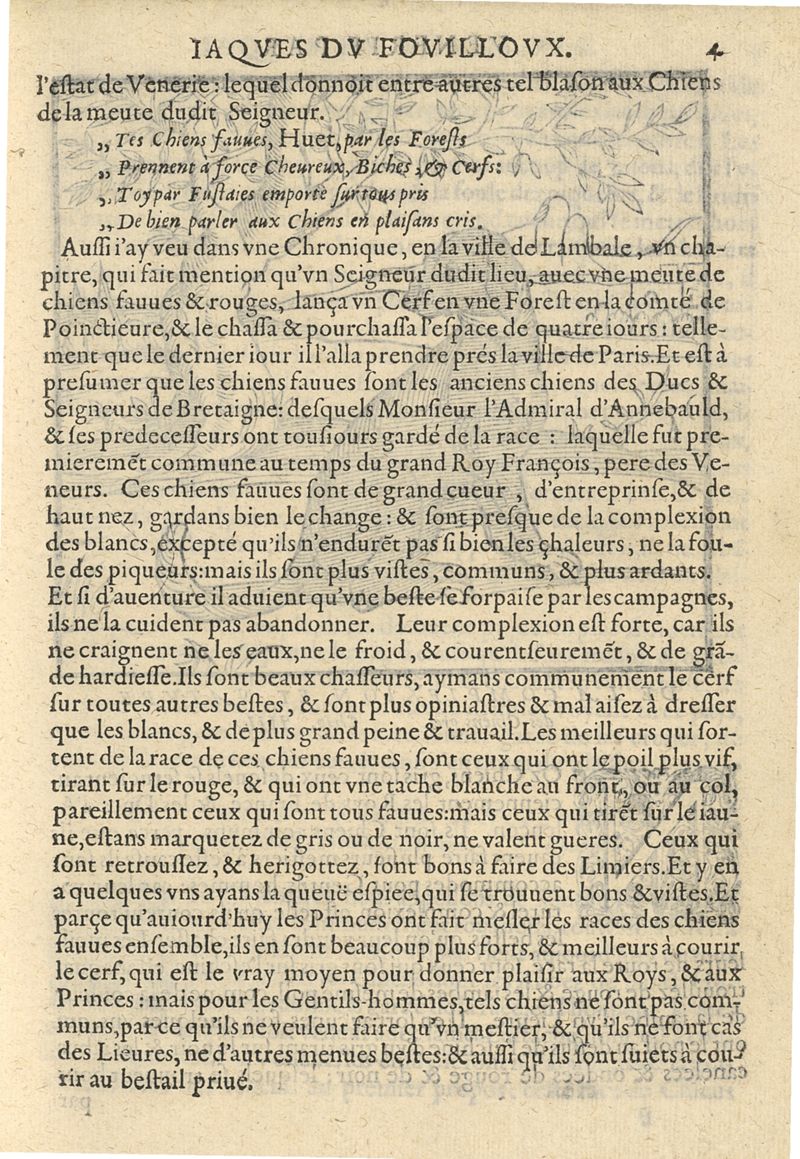 IAQVES DV FOVILLOVX. 4
l'eſtat de Venerie : lequel donnoit entre autres tel blaſon aux Chiens
de la meute dudit Seigneur.
„ Tes Chiens fauues, Huet, par les Foreſts
„ Prennent à force Cheureux, Biches, & Cerfs:
„ Toy par Fuſtaies emporte ſur tous pris
„ De bien parler aux Chiens en plaiſans cris.
Auſſi i'ay veu dans vne Chronique, en la ville de Lambale, vn cha-
pitre, qui fait mention qu'vn Seigneur dudit lieu, auec vne meute de
chiens fauues & rouges, lança vn Cerf en vne Foreſt en la comté de
Poinctieure,& le chaſſa & pourchaſſa l'eſpace de quatre iours : telle-
ment que le dernier iour il l'alla prendre prés la ville de Paris.Et eſt à
preſumer que les chiens fauues ſont les anciens chiens des Ducs &
Seigneurs de Bretaigne: deſquels Monſieur l'Admiral d'Annebauld,
& ſes predeceſſeurs ont touſiours gardé de la race : laquelle fut pre-
mieremēt commune au temps du grand Roy François, pere des Ve-
neurs. Ces chiens fauues ſont de grand cueur , d'entreprinſe,& de
haut nez, gardans bien le change : & ſont preſque de la complexion
des blancs,excepté qu'ils n'endurēt pas ſi bien les chaleurs, ne la fou-
le des piqueurs:mais ils ſont plus viſtes, communs, & plus ardants.
Et ſi d'auenture il aduient qu'vne beſte ſe forpaiſe par les campagnes,
ils ne la cuident pas abandonner. Leur complexion eſt forte, car ils
ne craignent ne les eaux,ne le froid, & courent ſeuremēt, & de grā-
de hardieſſe.Ils ſont beaux chaſſeurs, aymans communement le cerf
ſur toutes autres beſtes, & ſont plus opiniaſtres & mal aiſez à dreſſer
que les blancs, & de plus grand peine & trauail.Les meilleurs qui ſor-
tent de la race de ces chiens fauues, ſont ceux qui ont le poil plus vif,
tirant ſur le rouge, & qui ont vne tache blanche au front, ou au col,
pareillement ceux qui ſont tous fauues:mais ceux qui tirēt ſur le iau-
ne,eſtans marquetez de gris ou de noir, ne valent gueres. Ceux qui
ſont retrouſſez, & herigottez, ſont bons à faire des Limiers.Et y en
a quelques vns ayans la queuë eſpiee,qui ſe trouuent bons & viſtes.Et
parçe qu'auiourd'huy les Princes ont fait meſler les races des chiens
fauues enſemble,ils en ſont beaucoup plus forts, & meilleurs à courir
le cerf, qui eſt le vray moyen pour donner plaiſir aux Roys, & aux
Princes : mais pour les Gentils-hommes,tels chiens ne ſont pas com-
muns,par ce qu'ils ne veulent faire qu'vn meſtier, & qu'ils ne font cas
des Lieures, ne d'autres menues beſtes:& auſſi qu'ils ſont ſuiets à cou-
rir au beſtail priué.